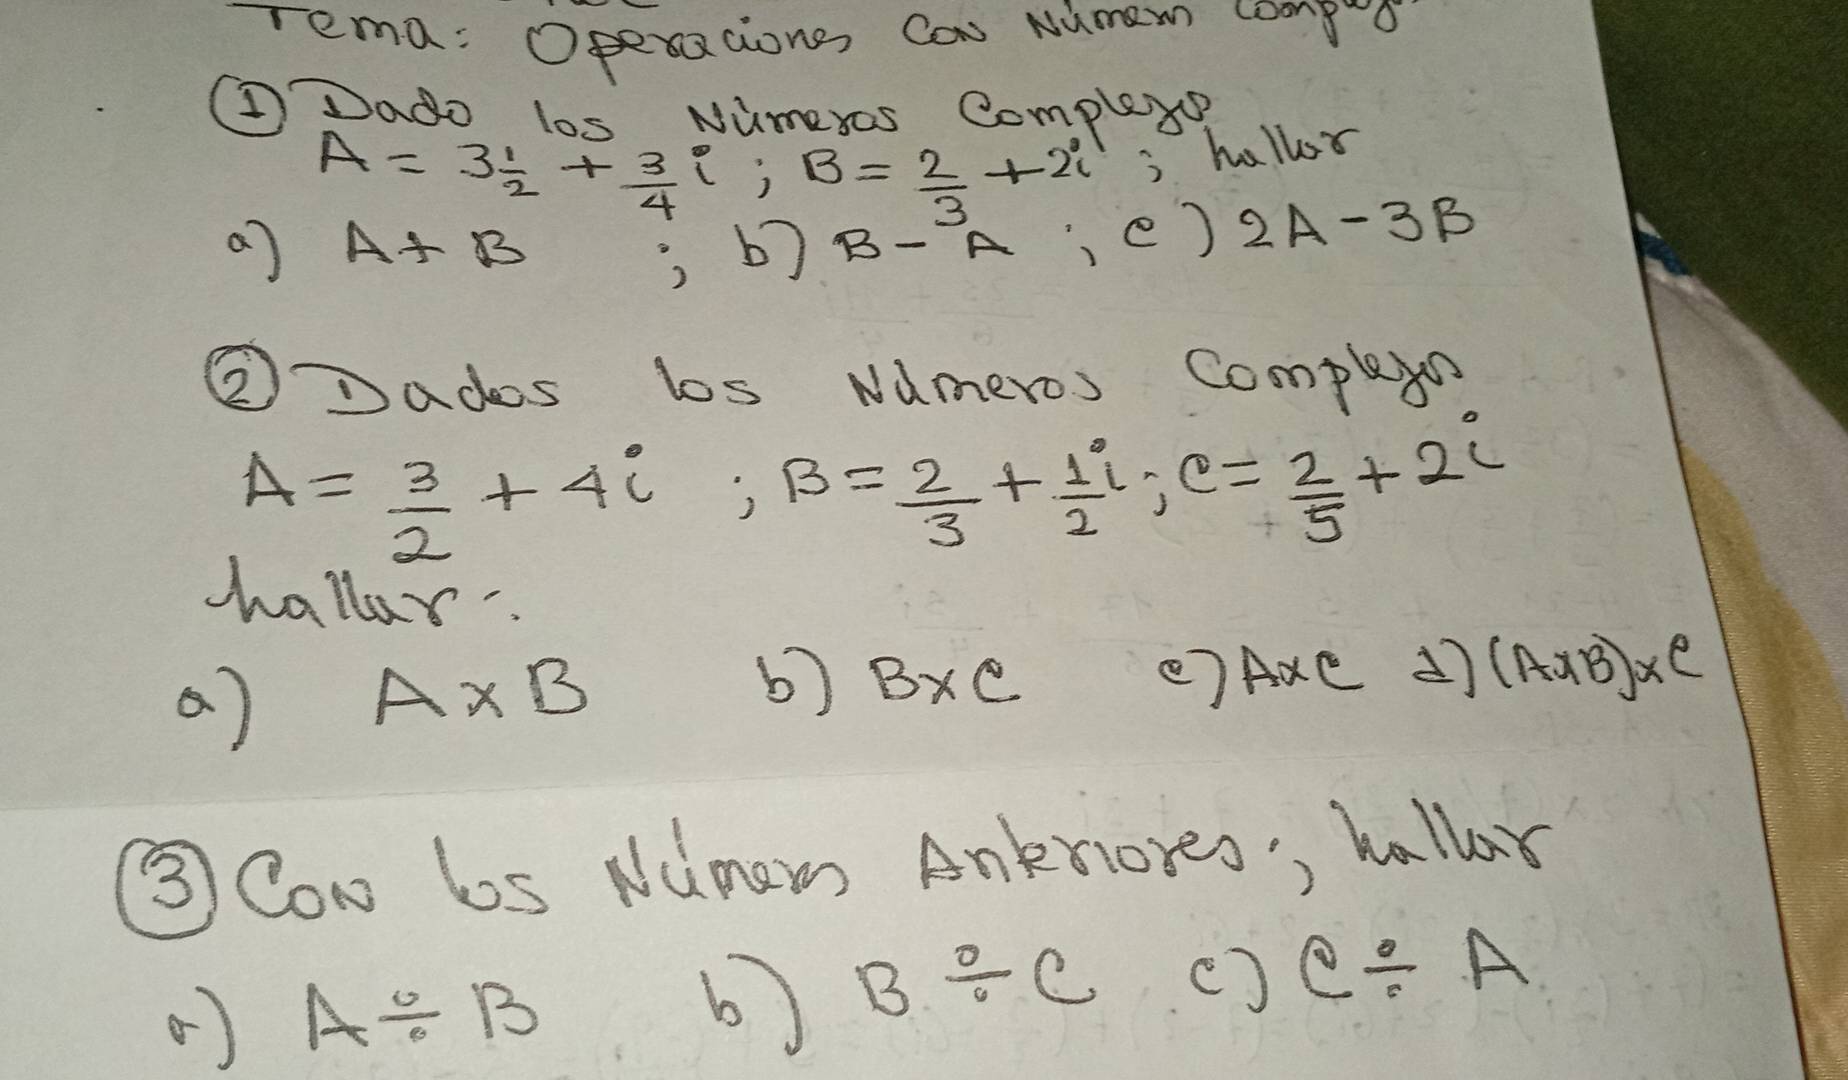 Tema: Operaciones Con Númem
① Dado los Números Complejos
A = 3 1/2 + 3/4 i ; B = 2/3 + 2i ; hallar
a) A + B ; b) B - A ; c) 2A - 3B
② Dados los Números Complejos
A = 3/2 + 4i ; B = 2/3 + 1/2 i ; C = 2/5 + 2i
hallar:
a) A x B b) B x C c) A x C d) (A x B) x C
③ Con los Números Anteriores ; hallar
a) A ÷ B b) B ÷ C c) C ÷ A